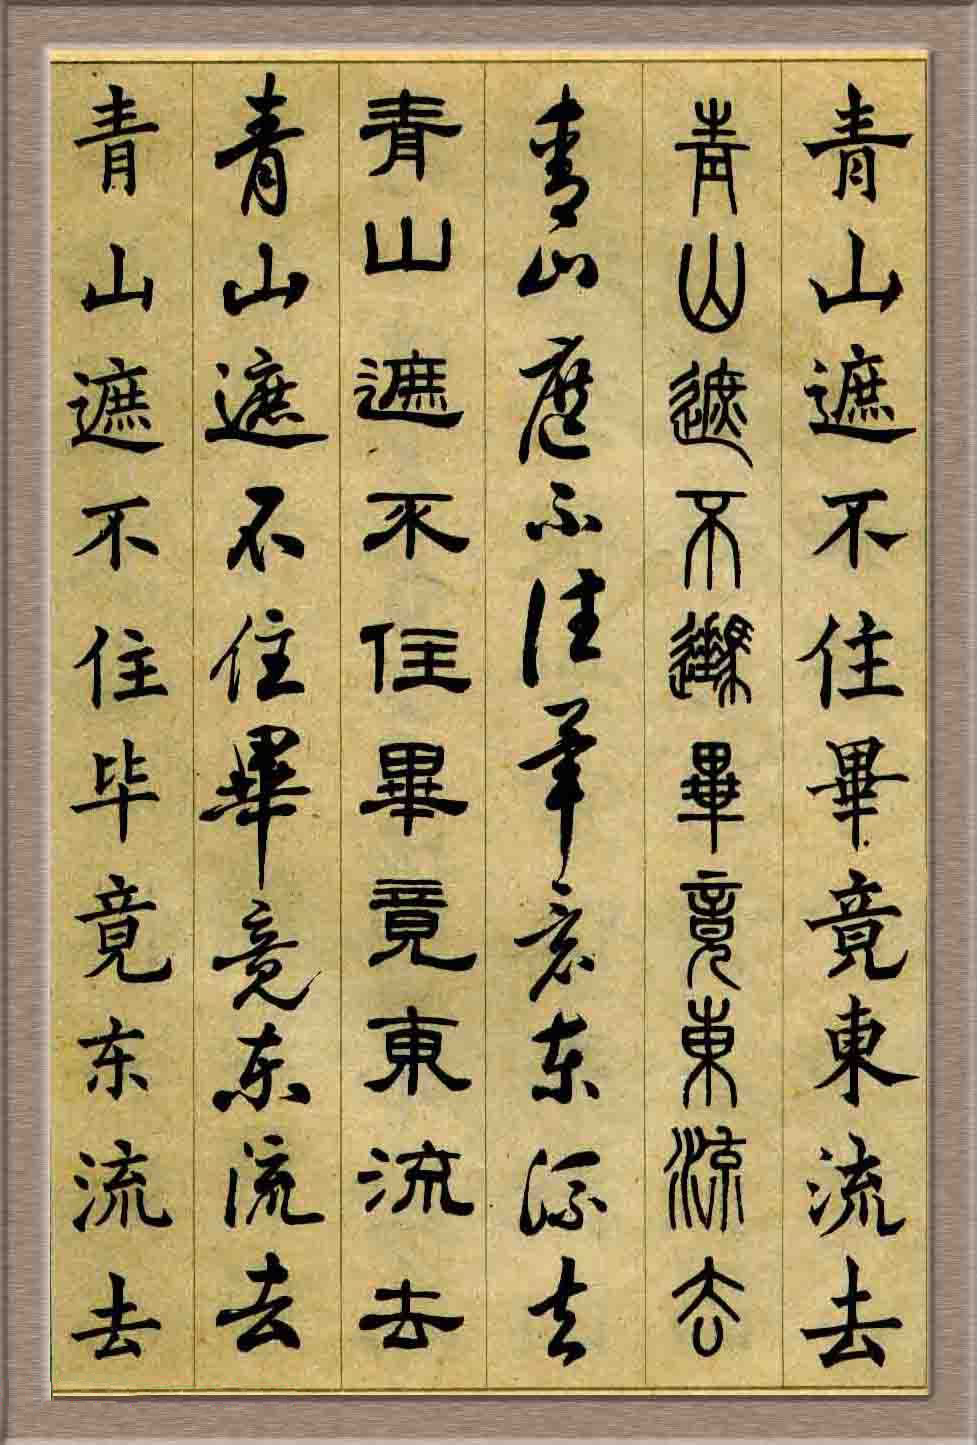 青山遮不住畢竟東流去
青山遮不住畢竟東流去
青山遮不住畢竟東流去
青山遮不住畢竟東流去
青山遮不住畢竟东流去
青山遮不住毕竟东流去